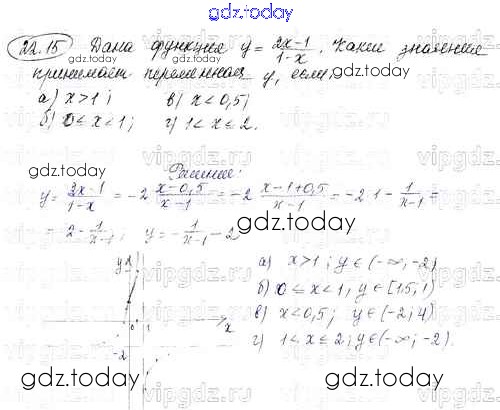 gdz.today
22.15 Дана функция y = 2x-1/1-x. Какие значения
принимает переменная y, если:
а) x > 1; в) x < 0,5;
б) 0 ≤ x < 1; г) 1 < x ≤ 2.
gdz.today gdz.today
Решение:
y = 2x-1/1-x = -2 x-0,5/x-1 = -2 x-1+0,5/x-1 = -2·1 - 1/x-1 =
gdz.today gdz.today
= 2 - 1/x-1; y = -1/x-1 - 2
y
а) x > 1; y ∈ (-∞; -2)
б) 0 ≤ x < 1, y ∈ [1,5; 1)
1 x
в) x < 0,5; y ∈ (-2; 4)
-2
г) 1 < x ≤ 2; y ∈ (-∞; -2).
gdz.today gdz.today
vipgdz.ru vipgdz.ru vipgdz.ru